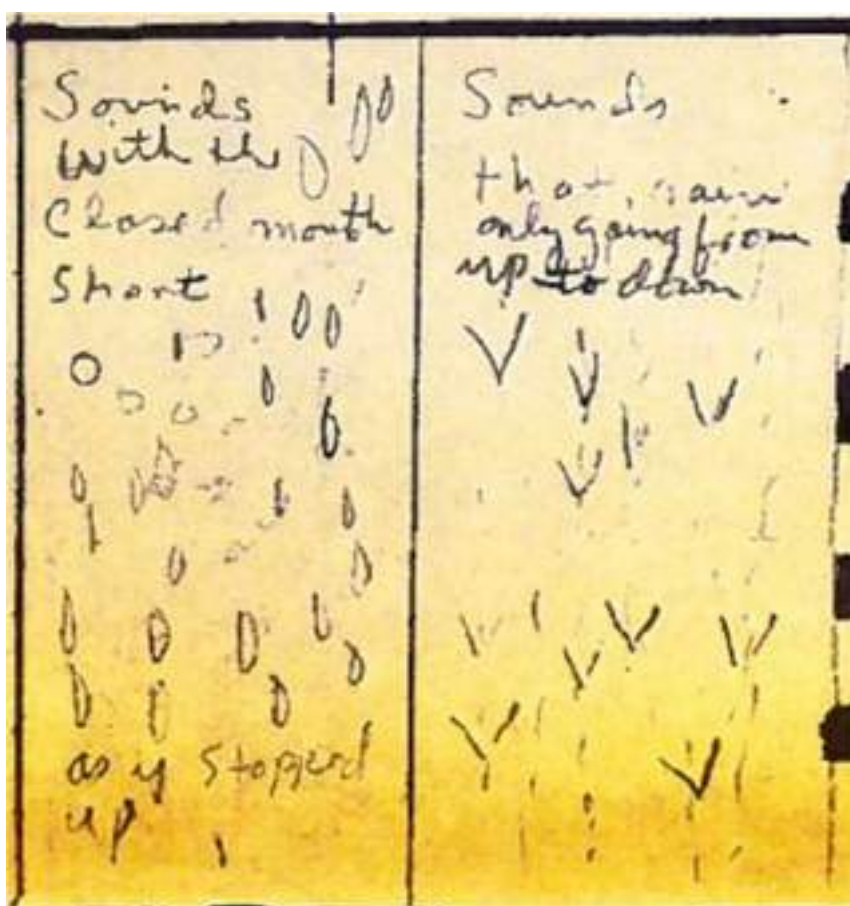 Sounds
with the
Closed mouth
Short
as if stopped
up
Sounds
that rain
only going from
up to down